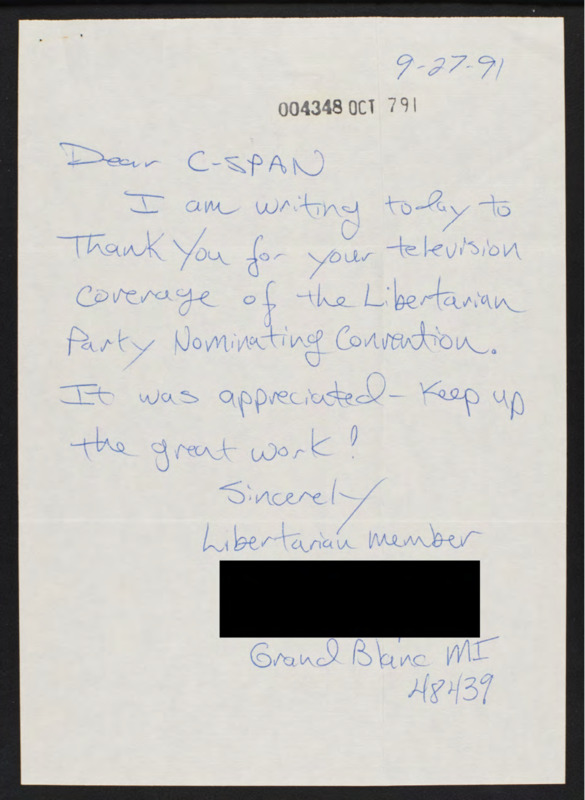 9-27-91
004348 OCT 791
Dear C-SPAN
I am writing today to
Thank You for your television
coverage of the Libertarian
Party Nominating Convention.
It was appreciated - Keep up
the great work!
Sincerely
Libertarian member
Grand Blanc MI
48439